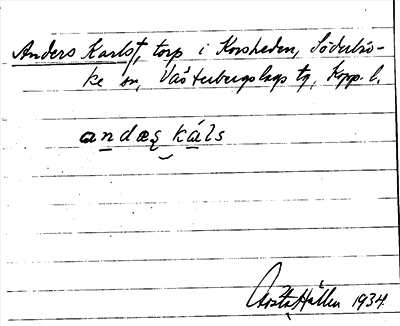 Anders Karlst, torp i Korsheden, Söderbär-
ke sn, Västerbergslags tg, Kopp. l.
andæʂ káls
Gösta Hallen 1934